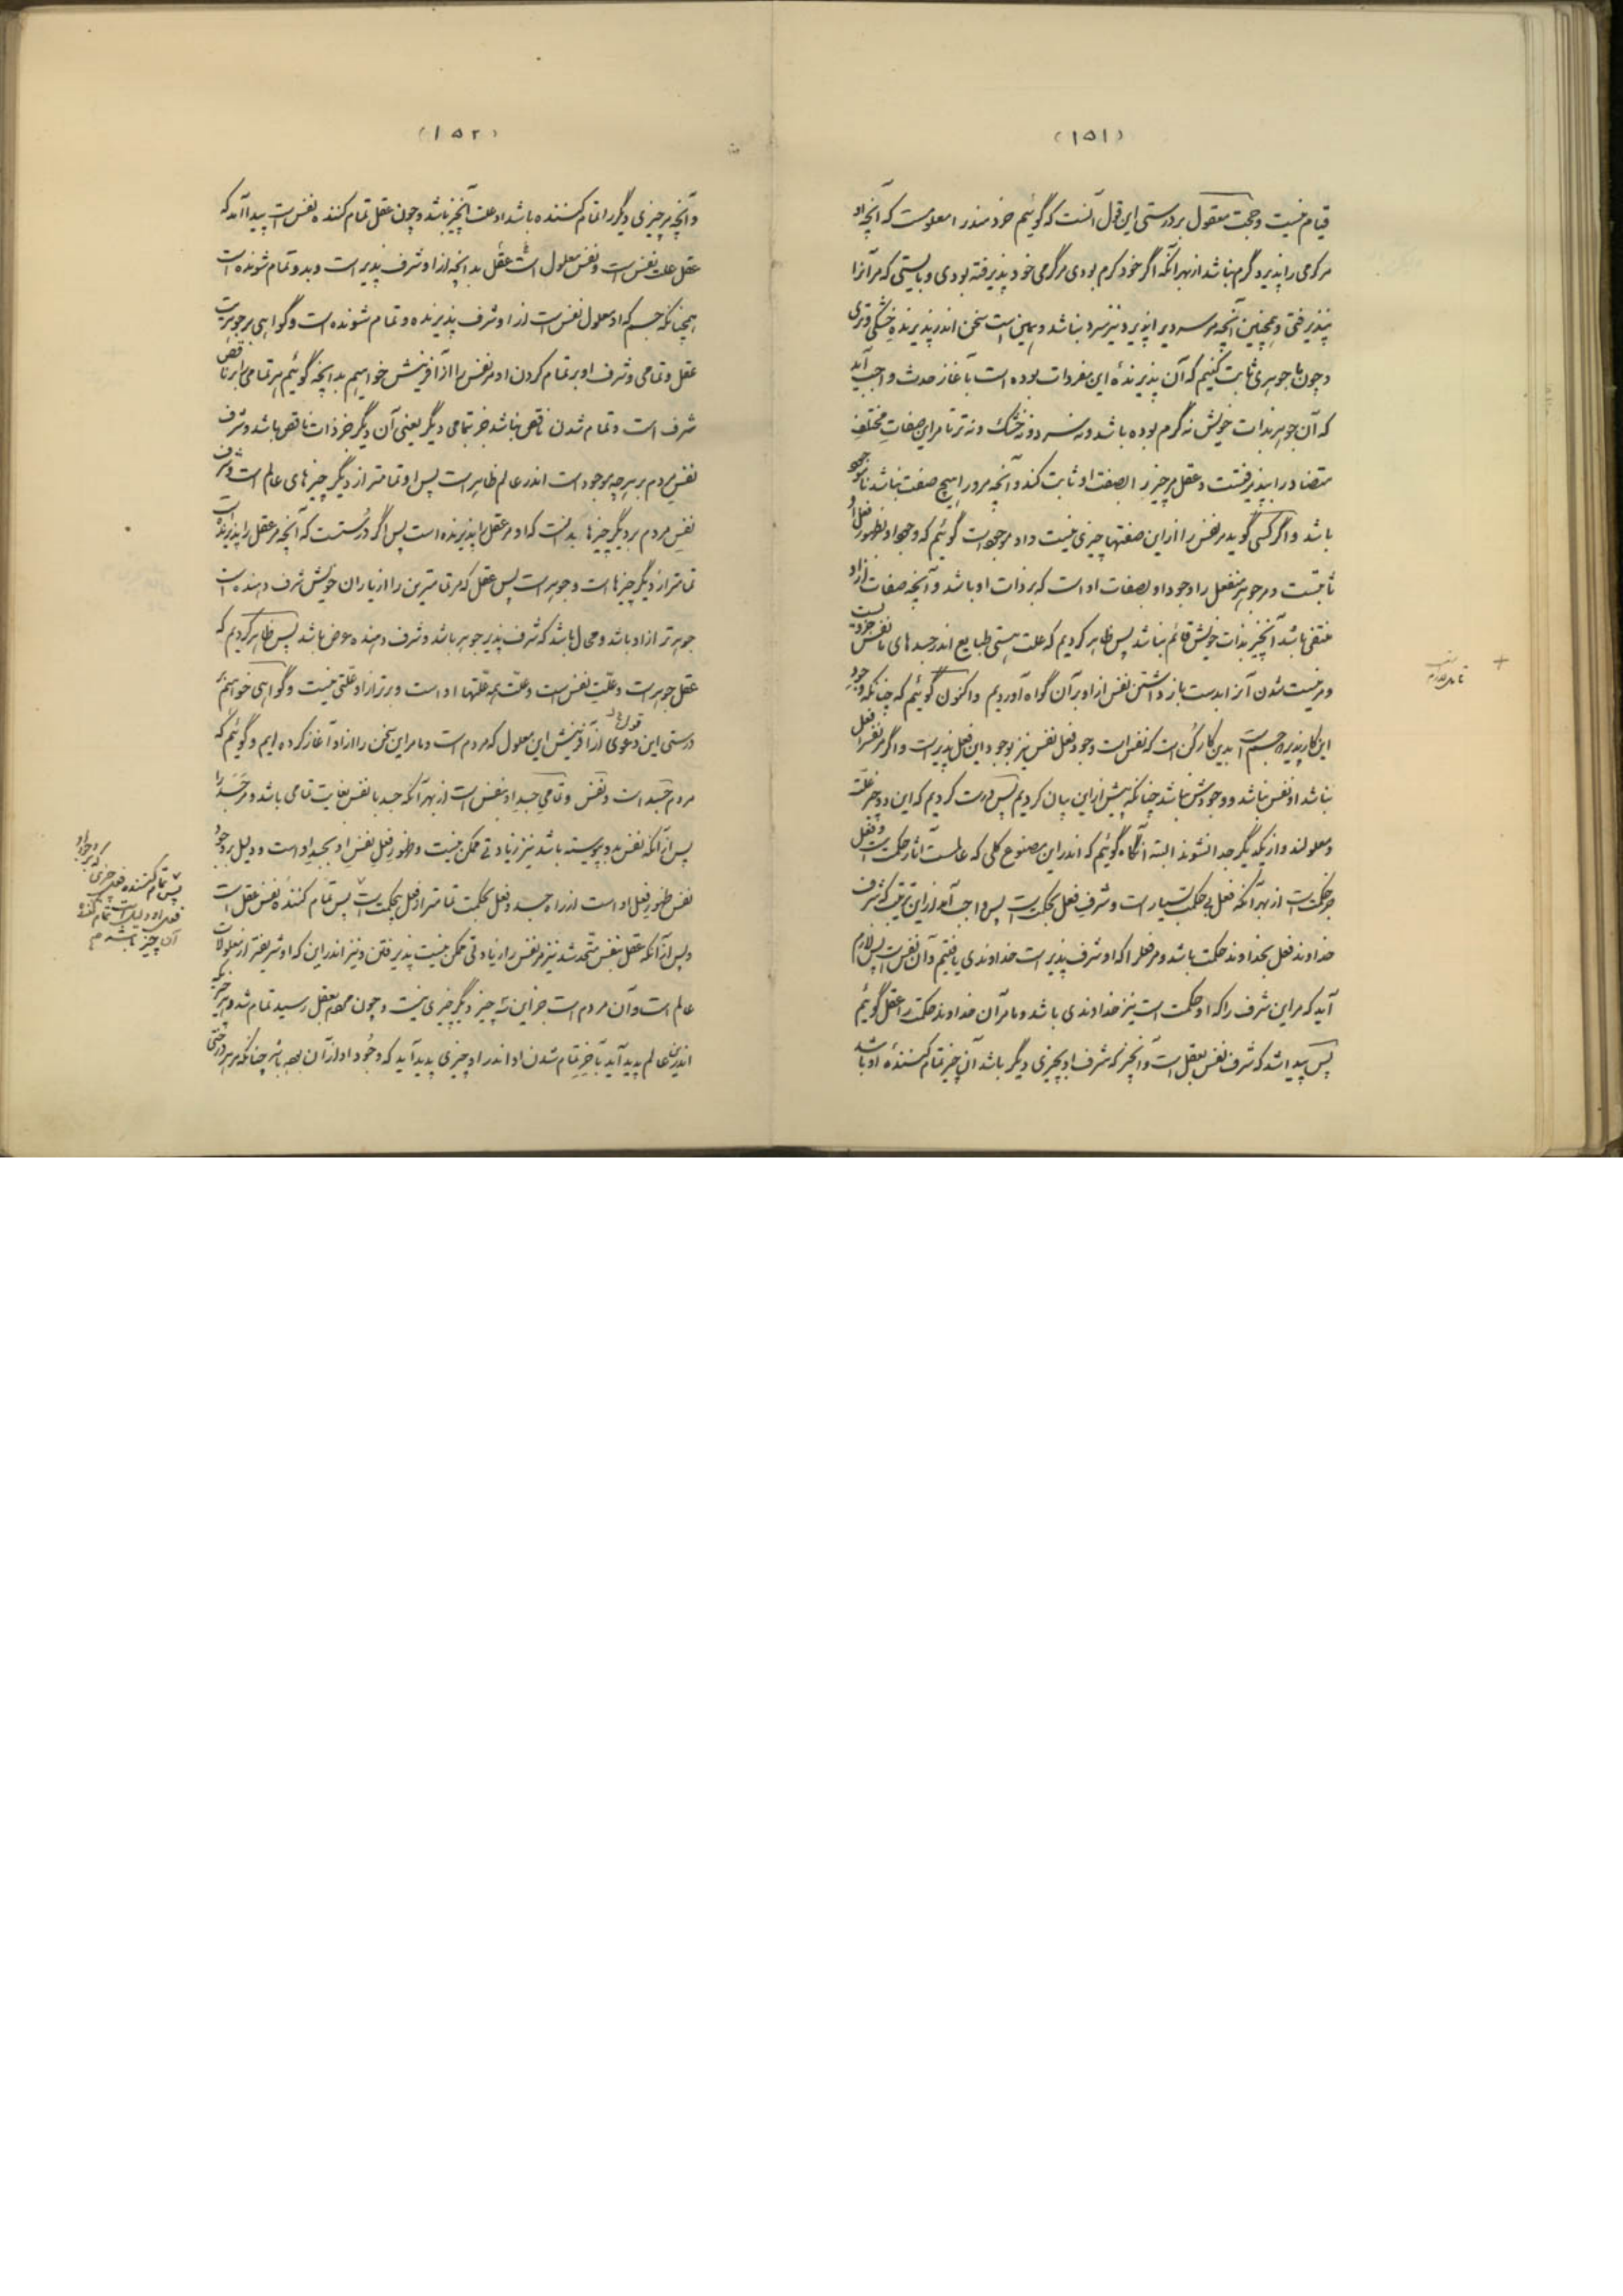 (۱۵۱)
قیام نیست و حجت معقول بر درستی این قول آنست که گوئیم خردمند را معلومست که آنچه او
مر گرمی را پذیرد گرم نباشد از بهر آنکه اگر خود گرم بودی مر گرمی خود پذیرفته بودی و بایستی که مر آنرا
نپذیرفتی و همچنین آنچه مر سردی را پذیرد نیز سرد نباشد و همین است سخن اندر پذیرنده خشکی و تری
و چون ما جوهری ثابت کنیم که آن پذیرندهٔ این مفردات بوده است بآغاز حدث واجب آید
که آن جوهر بذات خویش نه گرم بوده باشد و نه سرد و نه خشک و نه تر تا مر این صفات مختلف
متضاد را بپذیرفتست و عقل مر چیز را بصفت او ثابت کند و آنچه مرورا هیچ صفت نباشد ناموجود
باشد و اگر کسی گوید مر نفس را از این صفتها چیزی نیست و او موجود است گوئیم که وجود او بظهور فعل او
ثابتست و مر جوهر منفعل را وجود او بصفات او است که بر ذات او باشد و آنچه صفات از او
منتفی باشد آنچیز بذات خویش قائم نباشد پس ظاهر کردیم که علت هستی طبایع اندر جسدهای ما نفس جزویست
و مر نیست شدن آنرا بدست بازداشتن نفس از او بر آن گواه آوردیم و اکنون گوئیم که چنانکه وجود
این کارپذیر که جسم است بدین کارکن است که نفس است وجود فعل نفس نیز بوجود این فعل پذیر است و اگر مر نفس را فعل
نباشد او نفس نباشد و وجودش نباشد چنانکه پیش از این بیان کردیم پس درست کردیم که این دو چیز علت
و معلولند و از یکدیگر جدا نشوند البته آنگاه گوئیم که اندر این مصنوع کلی که عالمست آثار حکمت است و فعل
جز حکمت است از بهر آنکه فعل بی حکمت بسیار است و شرف فعل بحکمت است پس واجب آمد از این ترتیب که شرف
خداوند فعل بخداوند حکمت باشد و مر فعل را که او شرف پذیر است خداوندی یافتیم و آن نفس است پس لازم
آید که مر این شرف را که او حکمت است نیز خداوندی باشد و ما مر آن خداوند حکمت را عقل گوئیم
پس پیدا شد که شرف نفس بعقل است و آنچیز که شرف او بچیزی دیگر باشد آن چیز تمام کنندهٔ او باشد
(۱۵۲)
و آنچه مر چیزی دیگر را تمام کننده باشد او علت آنچیز باشد و چون عقل تمام کننده نفس است پیدا آمد که
عقل علت نفس است و نفس معلول است عقل بدانچه از او شرف پذیر است و بدو تمام شونده است
همچنانکه جسم که او معلول نفس است از او شرف پذیرنده و تمام شونده است و گواهی بر جوهریت
عقل و تمامی و شرف او بر تمام کردن او مر نفس را از آفرینش خواهیم بدانچه گوئیم هر تمامی را بر ناقص
شرف است و تمام شدن ناقص نباشد جز بتمامی دیگر یعنی آن دیگر جز ذات ناقص باشد و شرف
نفس مردم بر هر چه موجود است اندر عالم ظاهر است پس او تمامتر از دیگر چیزهای عالم است و شرف
نفس مردم بر دیگر چیزها بدانست که او مر عقل را پذیرنده است پس اگر درستست که آنچه مر عقل را پذیرنده است
تمامتر از دیگر چیزها است و جوهر است پس عقل که مر تمامترین را از یاران خویش شرف دهنده است
جوهرتر از او باشد و محال باشد که شرف پذیر جوهر باشد و شرف دهنده عرض باشد پس ظاهر کردیم که
عقل جوهر است و علت نفس است و علت همه علتها او است و برتر از او علتی نیست و گواهی خواهیم بر
درستی این دعوی از آفرینش این معلول که مردم است و ما مر این سخن را از او آغاز کرده ایم و گوئیم که
مردم جسد است و نفس و تمامی جسد او بنفس است از بهر آنکه جسد با نفس بغایت تمامی باشد و مر جسد را
پس از آنکه نفس بدو پیوسته باشد نیز زیادتی ممکن نیست و ظهور فعل نفس او بجسد او است و دلیل بر وجود
نفس ظهور فعل او است از راه جسد و فعل بحکمت تمامتر از فعل بیحکمت است پس تمام کنندهٔ نفس عقل است
و پس از آنکه عقل بنفس متحد شد نیز مر نفس را زیادتی ممکن نیست پذیرفتن و نیز اندر این که او شریفتر از معلولات
عالم است و آن مردم است جز این سه چیز دیگر چیزی نیست و چون مردم بعقل رسید تمام شد و هر چیزیکه
اندر این عالم پدید آید بآخر تمام شدن او اندر او چیزی پدید آید که وجود او از آن بهره باشد چنانکه مر هر درختی
پس تمام کننده فعل چیزی که وجود او
فعل او دلیل است تمام کننده
آن چیز باشد م